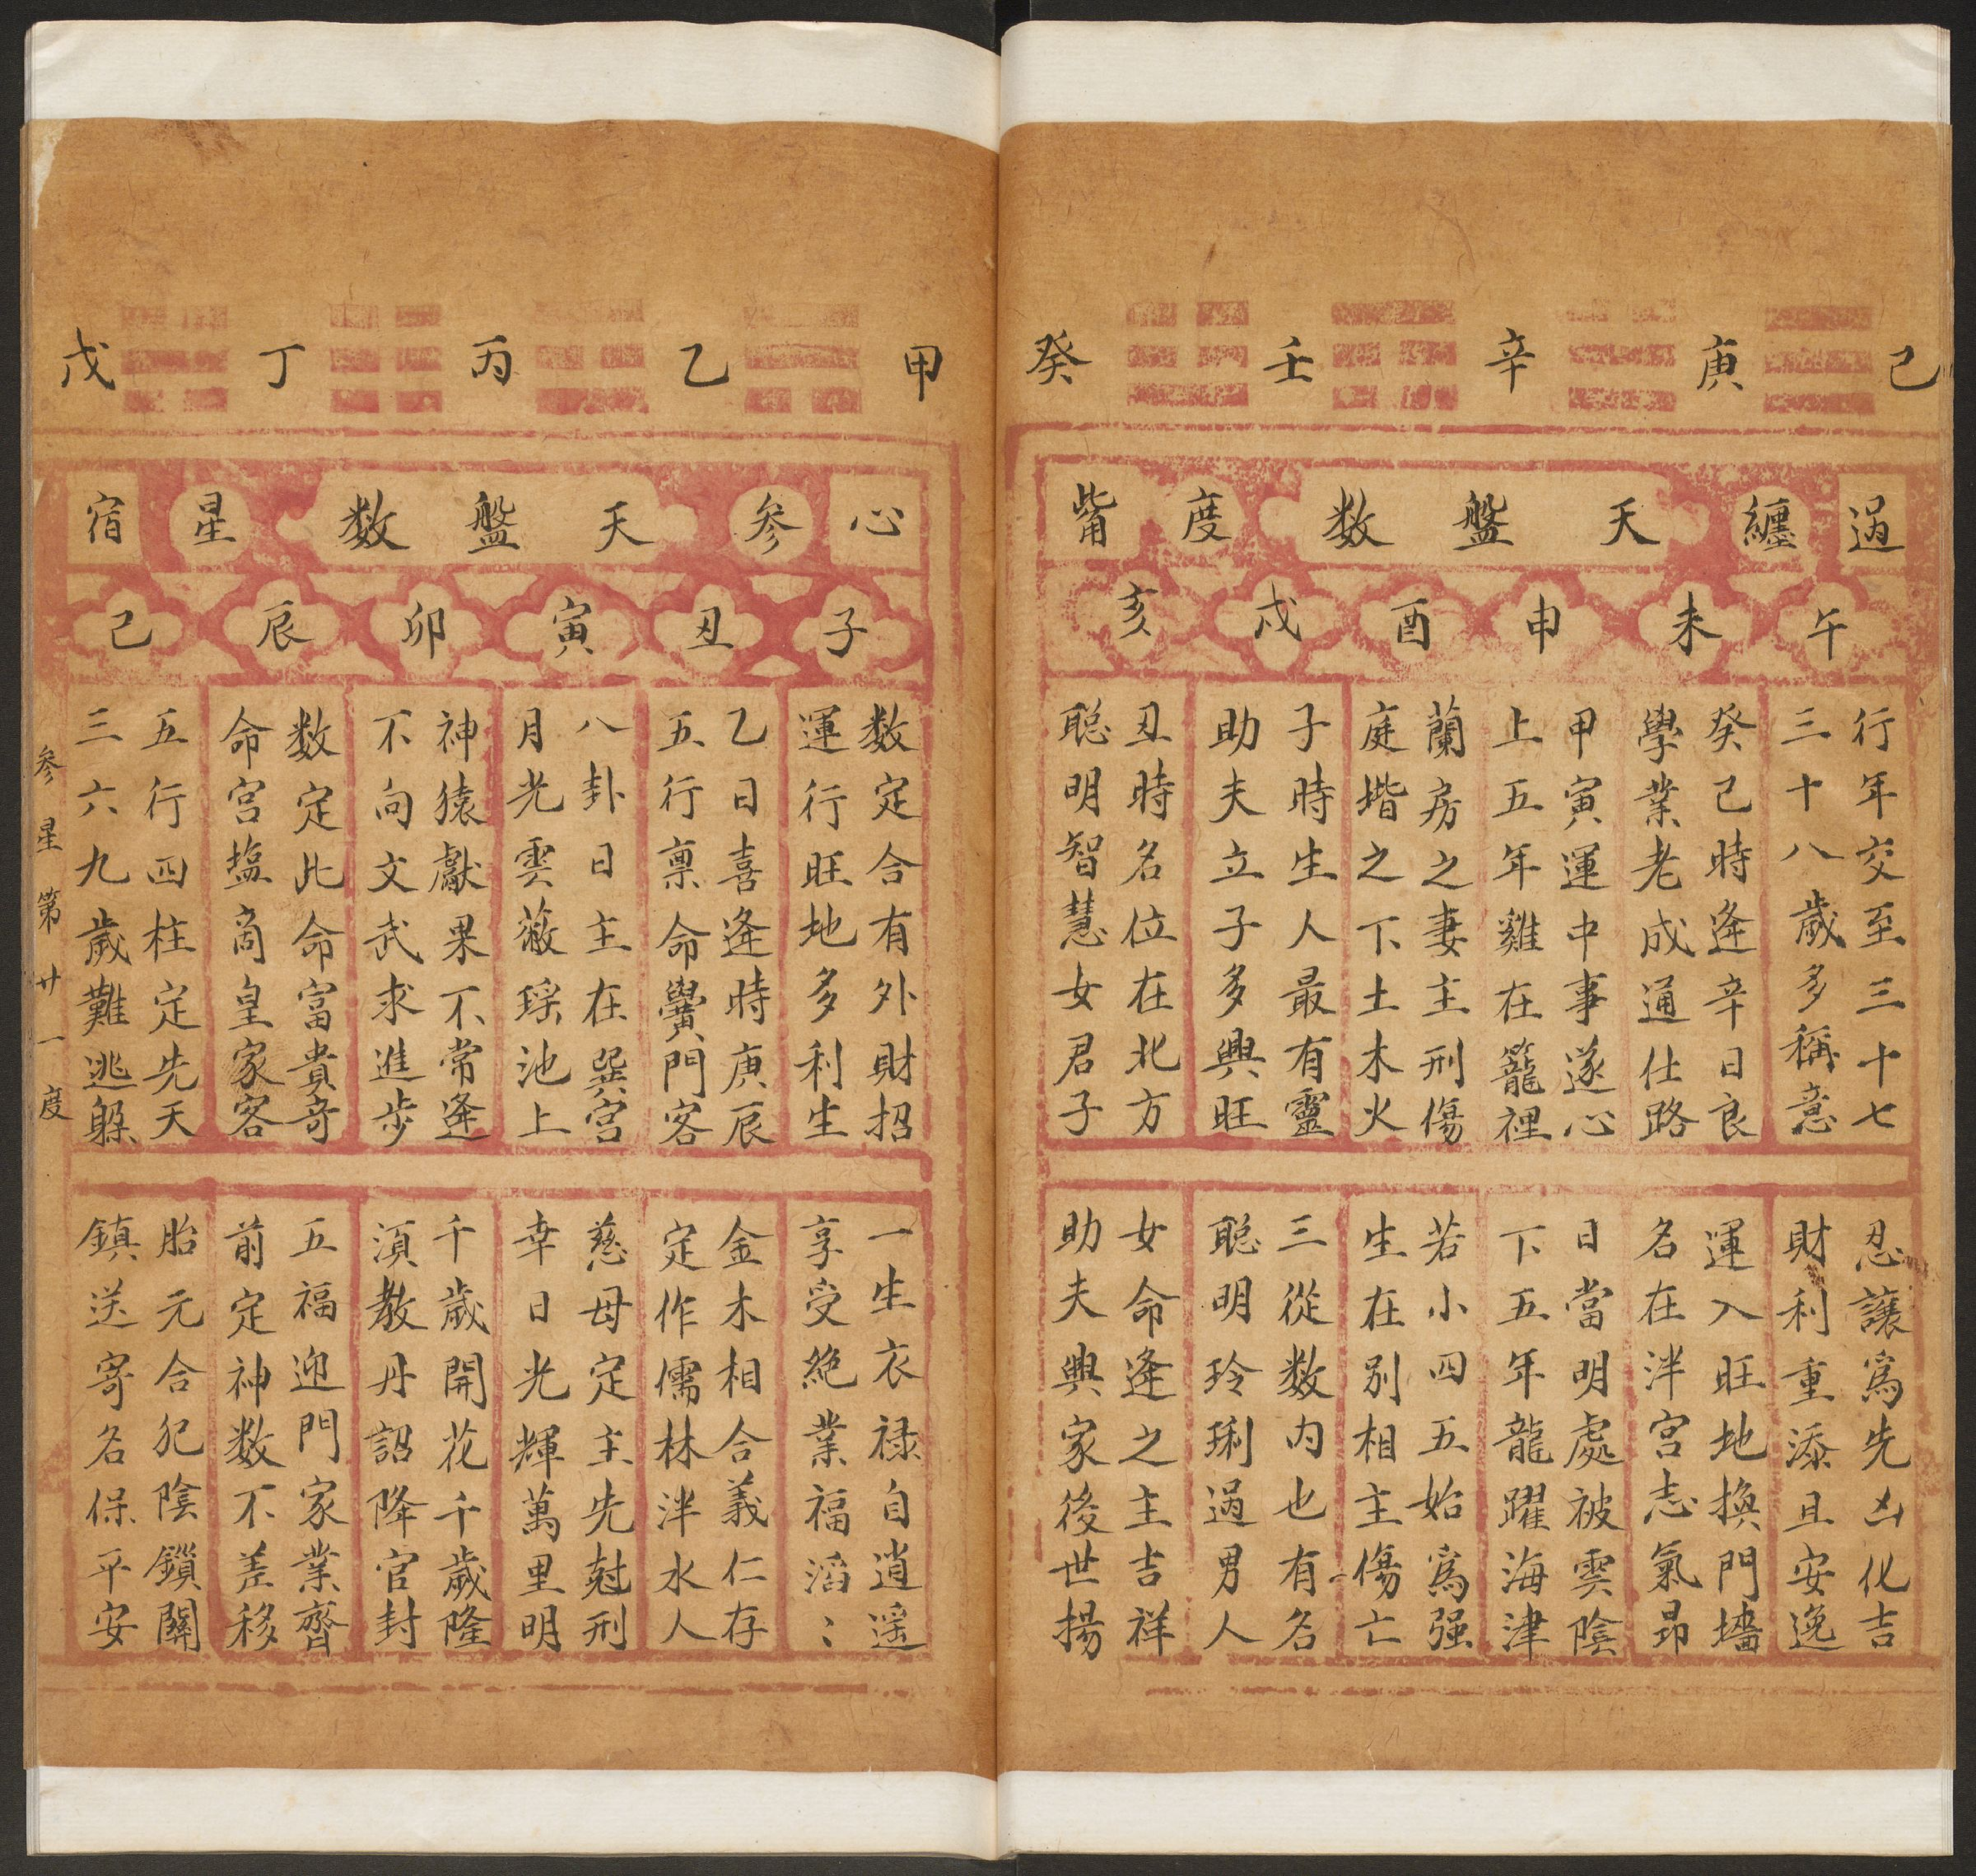 己 庚 辛 壬 癸
過 纏 天 盤 数 度 觜
午 未 申 酉 戌 亥
行年交至三十七
三十八歲多稱意
癸己時逢辛日良
學業老成通仕路
甲寅運中事遂心
上五年雞在籠裡
蘭房之妻主刑傷
庭堦之下土木火
子時生人最有靈
助夫立子多興旺
丑時名位在北方
聪明智慧女君子
忍讓為先凶化吉
財利重添且安逸
運入旺地換門墻
名在泮宫志氣昻
日當明處被雲陰
下五年龍躍海津
若小四五始為强
生在别相主傷亡
三從数内也有名
聪明玲琍過男人
女命逢之主吉祥
助夫興家後世揚
甲 乙 丙 丁 戊
心 参 天 盤 数 星 宿
子 丑 寅 卯 辰 己
数定合有外財招
運行旺地多利生
乙日喜逢時庚辰
五行禀命黌門客
八卦日主在巽宫
月光雲蔽瑶池上
神猿獻果不常逢
不向文武求進步
数定此命富貴奇
命宫塩商皇家客
五行四柱定先天
三六九歲難逃躱
一生衣禄自逍遥
享受絶業福滔〻
金木相合義仁存
定作儒林泮水人
慈母定主先尅刑
幸日光輝萬里明
千歲開花千歲隆
湏教丹詔降官封
五福迎門家業齊
前定神数不差移
胎元合犯陰鎖關
鎮送寄名保平安
参星第廿一度